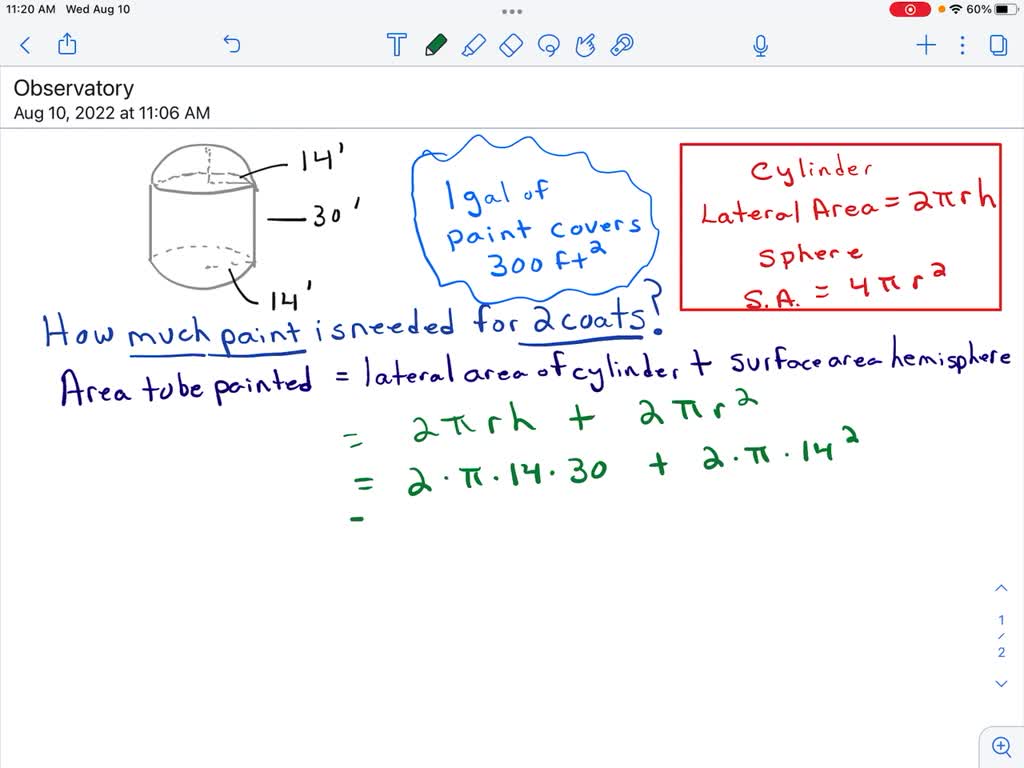 11:20 AM Wed Aug 10
60%
Observatory
Aug 10, 2022 at 11:06 AM
14'
30'
14'
1 gal of
paint covers
300 ft²
Cylinder
Lateral Area = 2πrh
Sphere
S.A. = 4πr²
How much paint is needed for 2 coats?
Area to be painted = lateral area of cylinder + surface area hemisphere
= 2πrh + 2πr²
= 2·π·14·30 + 2·π·14²
-
1
/
2